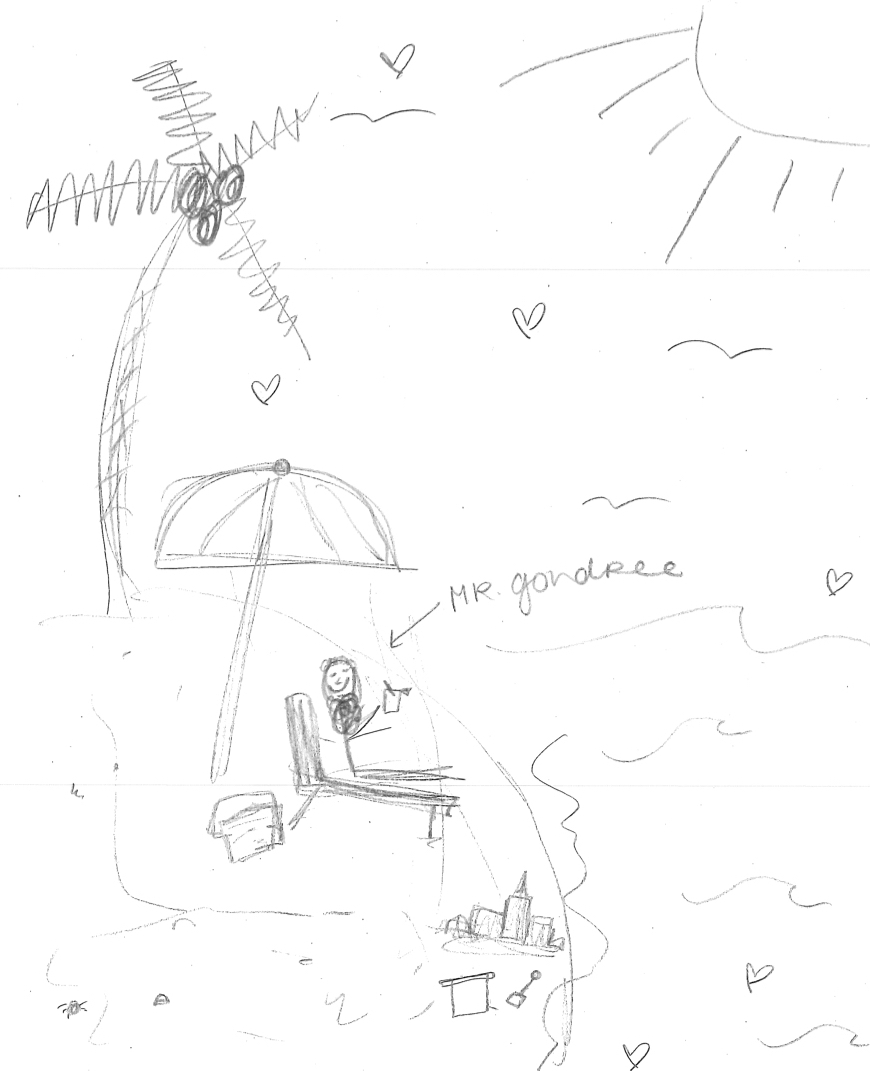 MR. gondree